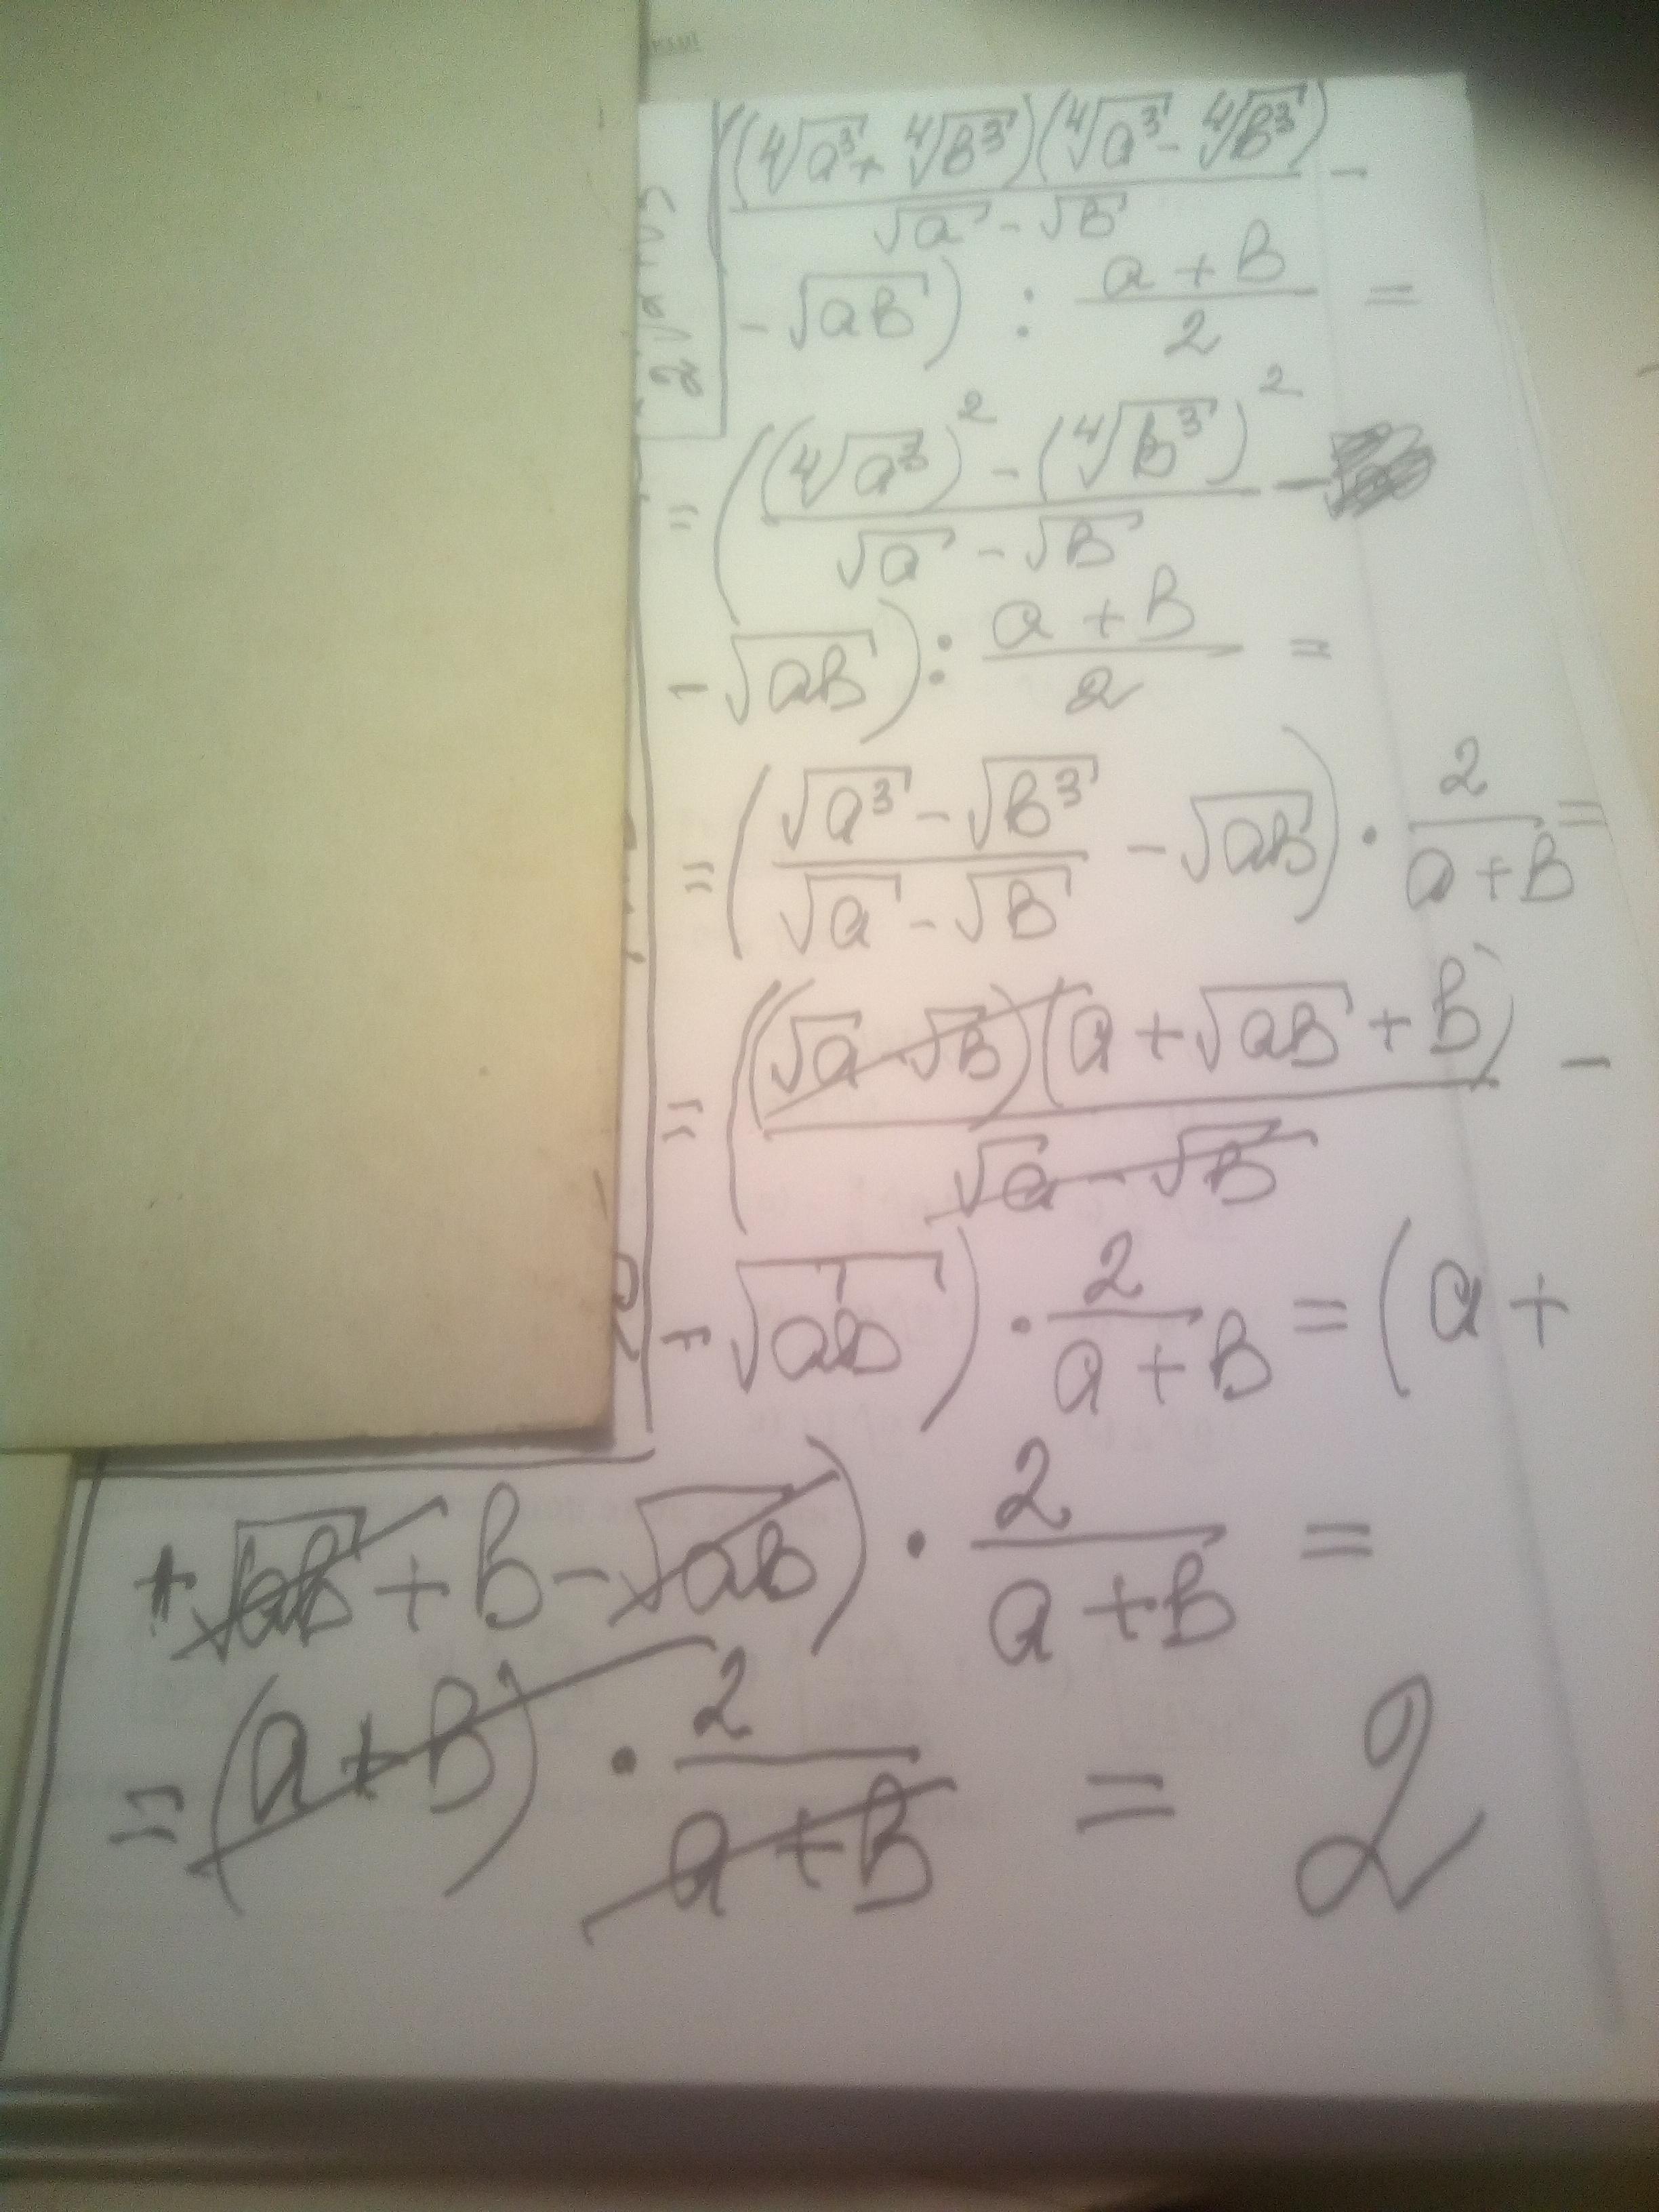 ((∜a³ + ∜b³)(∜a³ - ∜b³))/(√a - √b) -
- √ab) : (a + b)/2 =
= (((∜a³)² - (∜b³)²)/(√a - √b) -
- √ab) : (a + b)/2 =
= ((√a³ - √b³)/(√a - √b) - √ab) · 2/(a + b) =
= (((√a - √b)(a + √ab + b))/(√a - √b) -
- √ab) · 2/(a + b) = (a +
+ √ab + b - √ab) · 2/(a + b) =
= (a + b) · 2/(a + b) = 2